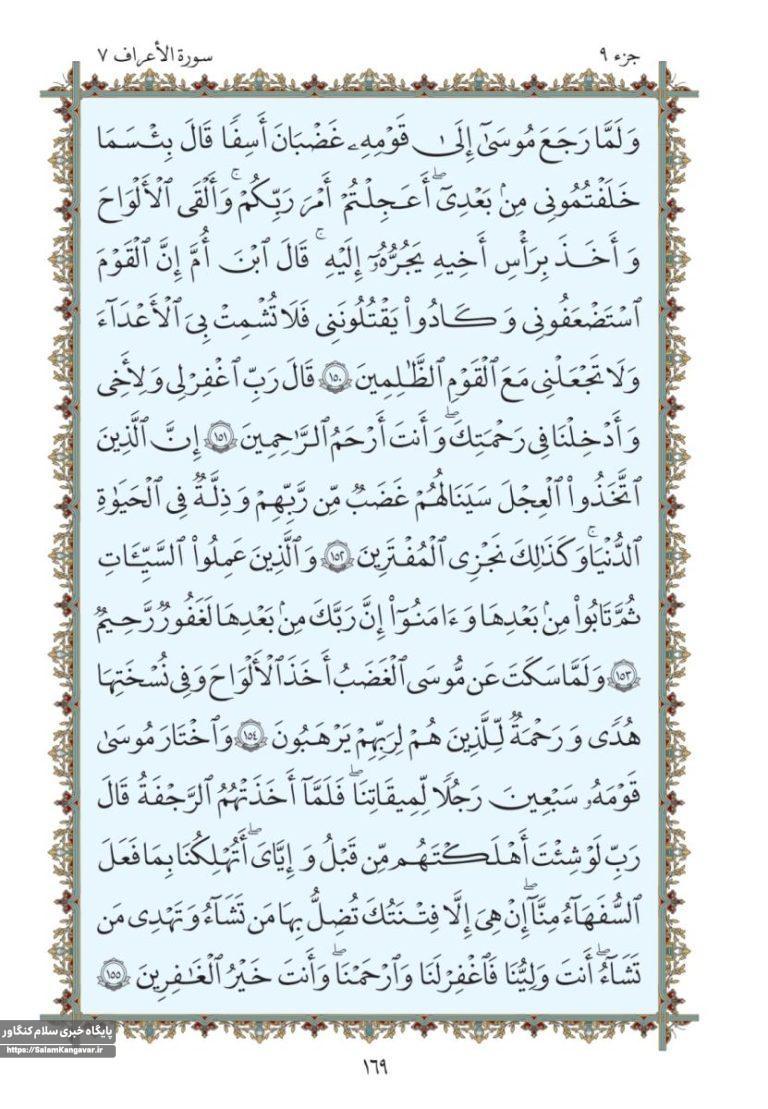 جزء ٩
سورة الأعراف ٧
وَلَمَّا رَجَعَ مُوسَىٰٓ إِلَىٰ قَوْمِهِۦ غَضْبَٰنَ أَسِفًا قَالَ بِئْسَمَا
خَلَفْتُمُونِى مِنۢ بَعْدِىٓ ۖ أَعَجِلْتُمْ أَمْرَ رَبِّكُمْ ۖ وَأَلْقَى ٱلْأَلْوَاحَ
وَأَخَذَ بِرَأْسِ أَخِيهِ يَجُرُّهُۥٓ إِلَيْهِ ۚ قَالَ ٱبْنَ أُمَّ إِنَّ ٱلْقَوْمَ
ٱسْتَضْعَفُونِى وَكَادُوا۟ يَقْتُلُونَنِى فَلَا تُشْمِتْ بِىَ ٱلْأَعْدَآءَ
وَلَا تَجْعَلْنِى مَعَ ٱلْقَوْمِ ٱلظَّٰلِمِينَ ١٥٠ قَالَ رَبِّ ٱغْفِرْ لِى وَلِأَخِى
وَأَدْخِلْنَا فِى رَحْمَتِكَ ۖ وَأَنتَ أَرْحَمُ ٱلرَّٰحِمِينَ ١٥١ إِنَّ ٱلَّذِينَ
ٱتَّخَذُوا۟ ٱلْعِجْلَ سَيَنَالُهُمْ غَضَبٌ مِّن رَّبِّهِمْ وَذِلَّةٌ فِى ٱلْحَيَوٰةِ
ٱلدُّنْيَا ۚ وَكَذَٰلِكَ نَجْزِى ٱلْمُفْتَرِينَ ١٥٢ وَٱلَّذِينَ عَمِلُوا۟ ٱلسَّيِّـَٔاتِ
ثُمَّ تَابُوا۟ مِنۢ بَعْدِهَا وَءَامَنُوٓا۟ إِنَّ رَبَّكَ مِنۢ بَعْدِهَا لَغَفُورٌ رَّحِيمٌ
١٥٣ وَلَمَّا سَكَتَ عَن مُّوسَى ٱلْغَضَبُ أَخَذَ ٱلْأَلْوَاحَ وَفِى نُسْخَتِهَا
هُدًى وَرَحْمَةٌ لِّلَّذِينَ هُمْ لِرَبِّهِمْ يَرْهَبُونَ ١٥٤ وَٱخْتَارَ مُوسَىٰ
قَوْمَهُۥ سَبْعِينَ رَجُلًا لِّمِيقَٰتِنَا ۖ فَلَمَّآ أَخَذَتْهُمُ ٱلرَّجْفَةُ قَالَ
رَبِّ لَوْ شِئْتَ أَهْلَكْتَهُم مِّن قَبْلُ وَإِيَّٰىَ ۖ أَتُهْلِكُنَا بِمَا فَعَلَ
ٱلسُّفَهَآءُ مِنَّآ ۖ إِنْ هِىَ إِلَّا فِتْنَتُكَ تُضِلُّ بِهَا مَن تَشَآءُ وَتَهْدِى مَن
تَشَآءُ ۖ أَنتَ وَلِيُّنَا فَٱغْفِرْ لَنَا وَٱرْحَمْنَا ۖ وَأَنتَ خَيْرُ ٱلْغَٰفِرِينَ ١٥٥
پایگاه خبری سلام کنگاور
https://SalamKangavar.ir
١٦٩